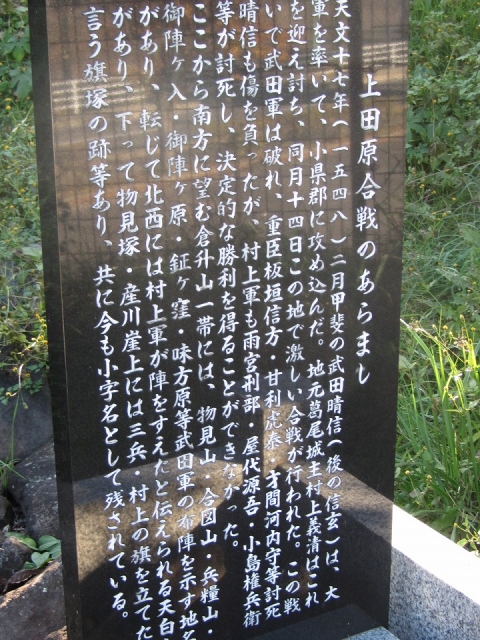 上田原合戦のあらまし
天文十七年(一五四八)二月甲斐の武田晴信(後の信玄)は、大
軍を率いて、小県郡に攻め込んだ。地元葛尾城主村上義清はこれ
を迎え討ち、同月十四日この地で激しい合戦が行われた。この戦
いで武田軍は破れ、重臣板垣信方・甘利虎泰・才間河内守等討死
晴信も傷を負ったが、村上軍も雨宮刑部・屋代源吾・小島権兵衛
等が討死し、決定的な勝利を得ることができなかった。
ここから南方に望む倉升山一帯には、物見山・合図山・兵糧山・
御陣ヶ入・御陣ヶ原・鉦ヶ窪・味方原等武田軍の布陣を示す地名
があり、転じて北西には村上軍が陣をすえたと伝えられる天白
があり、下って物見塚・産川崖上には三兵・村上の旗を立てた
言う旗塚の跡等あり、共に今も小字名として残されている。